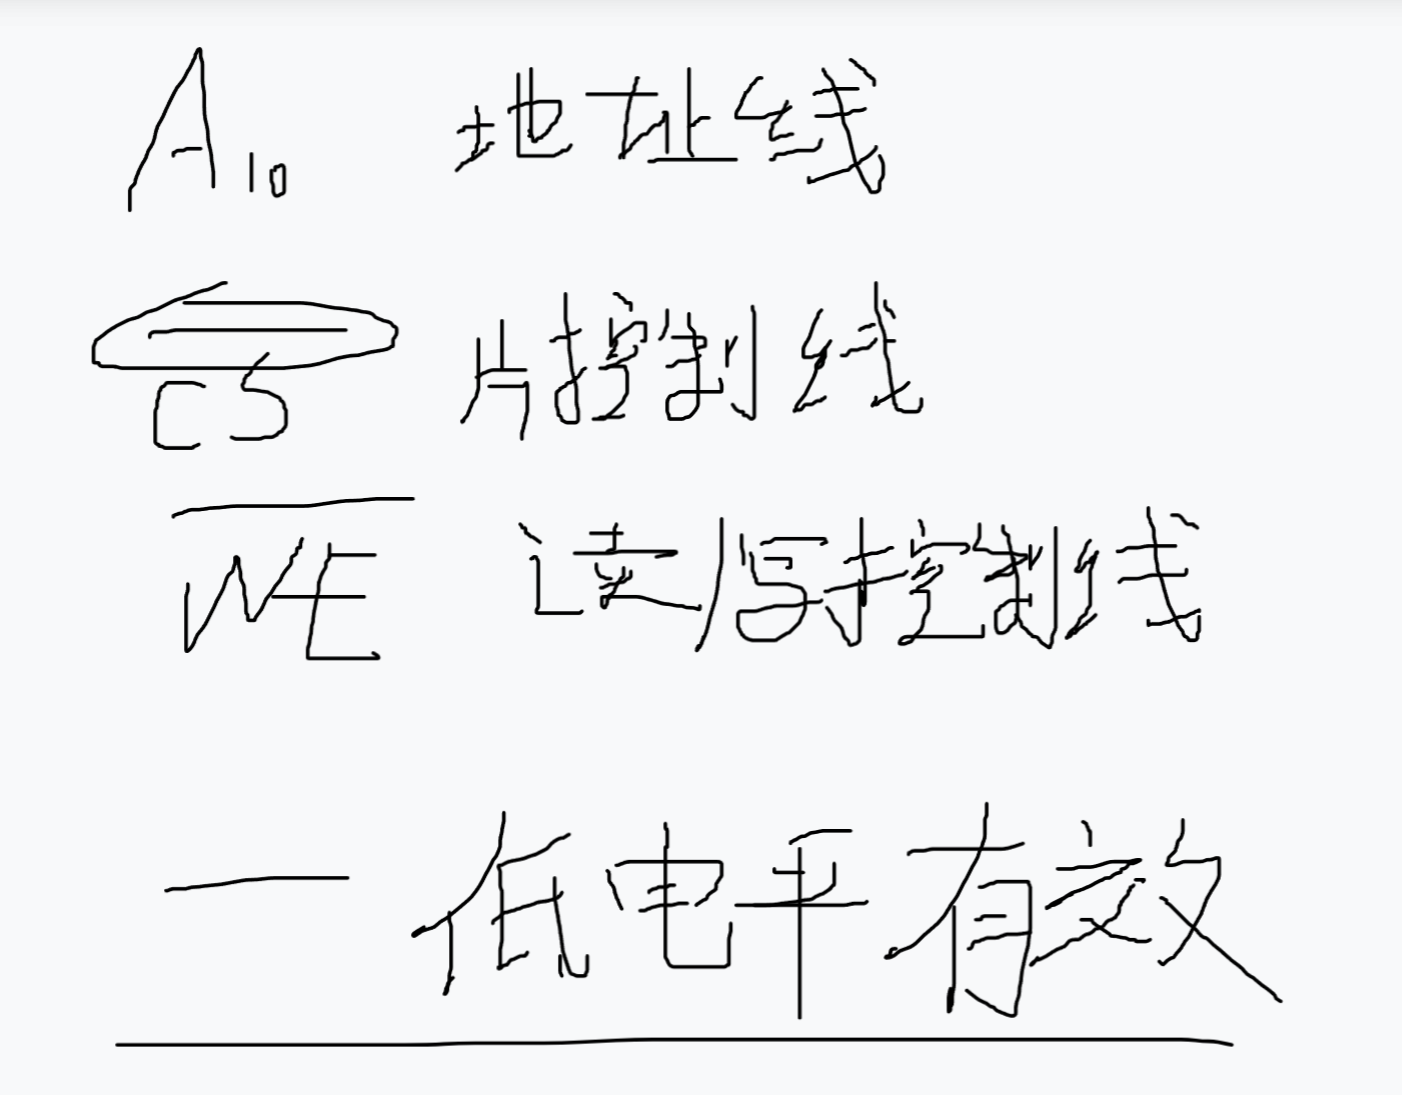 A₁₀ 地址线
C̅S̅ 片控制线
W̅E̅ 读/写控制线
— 低电平有效